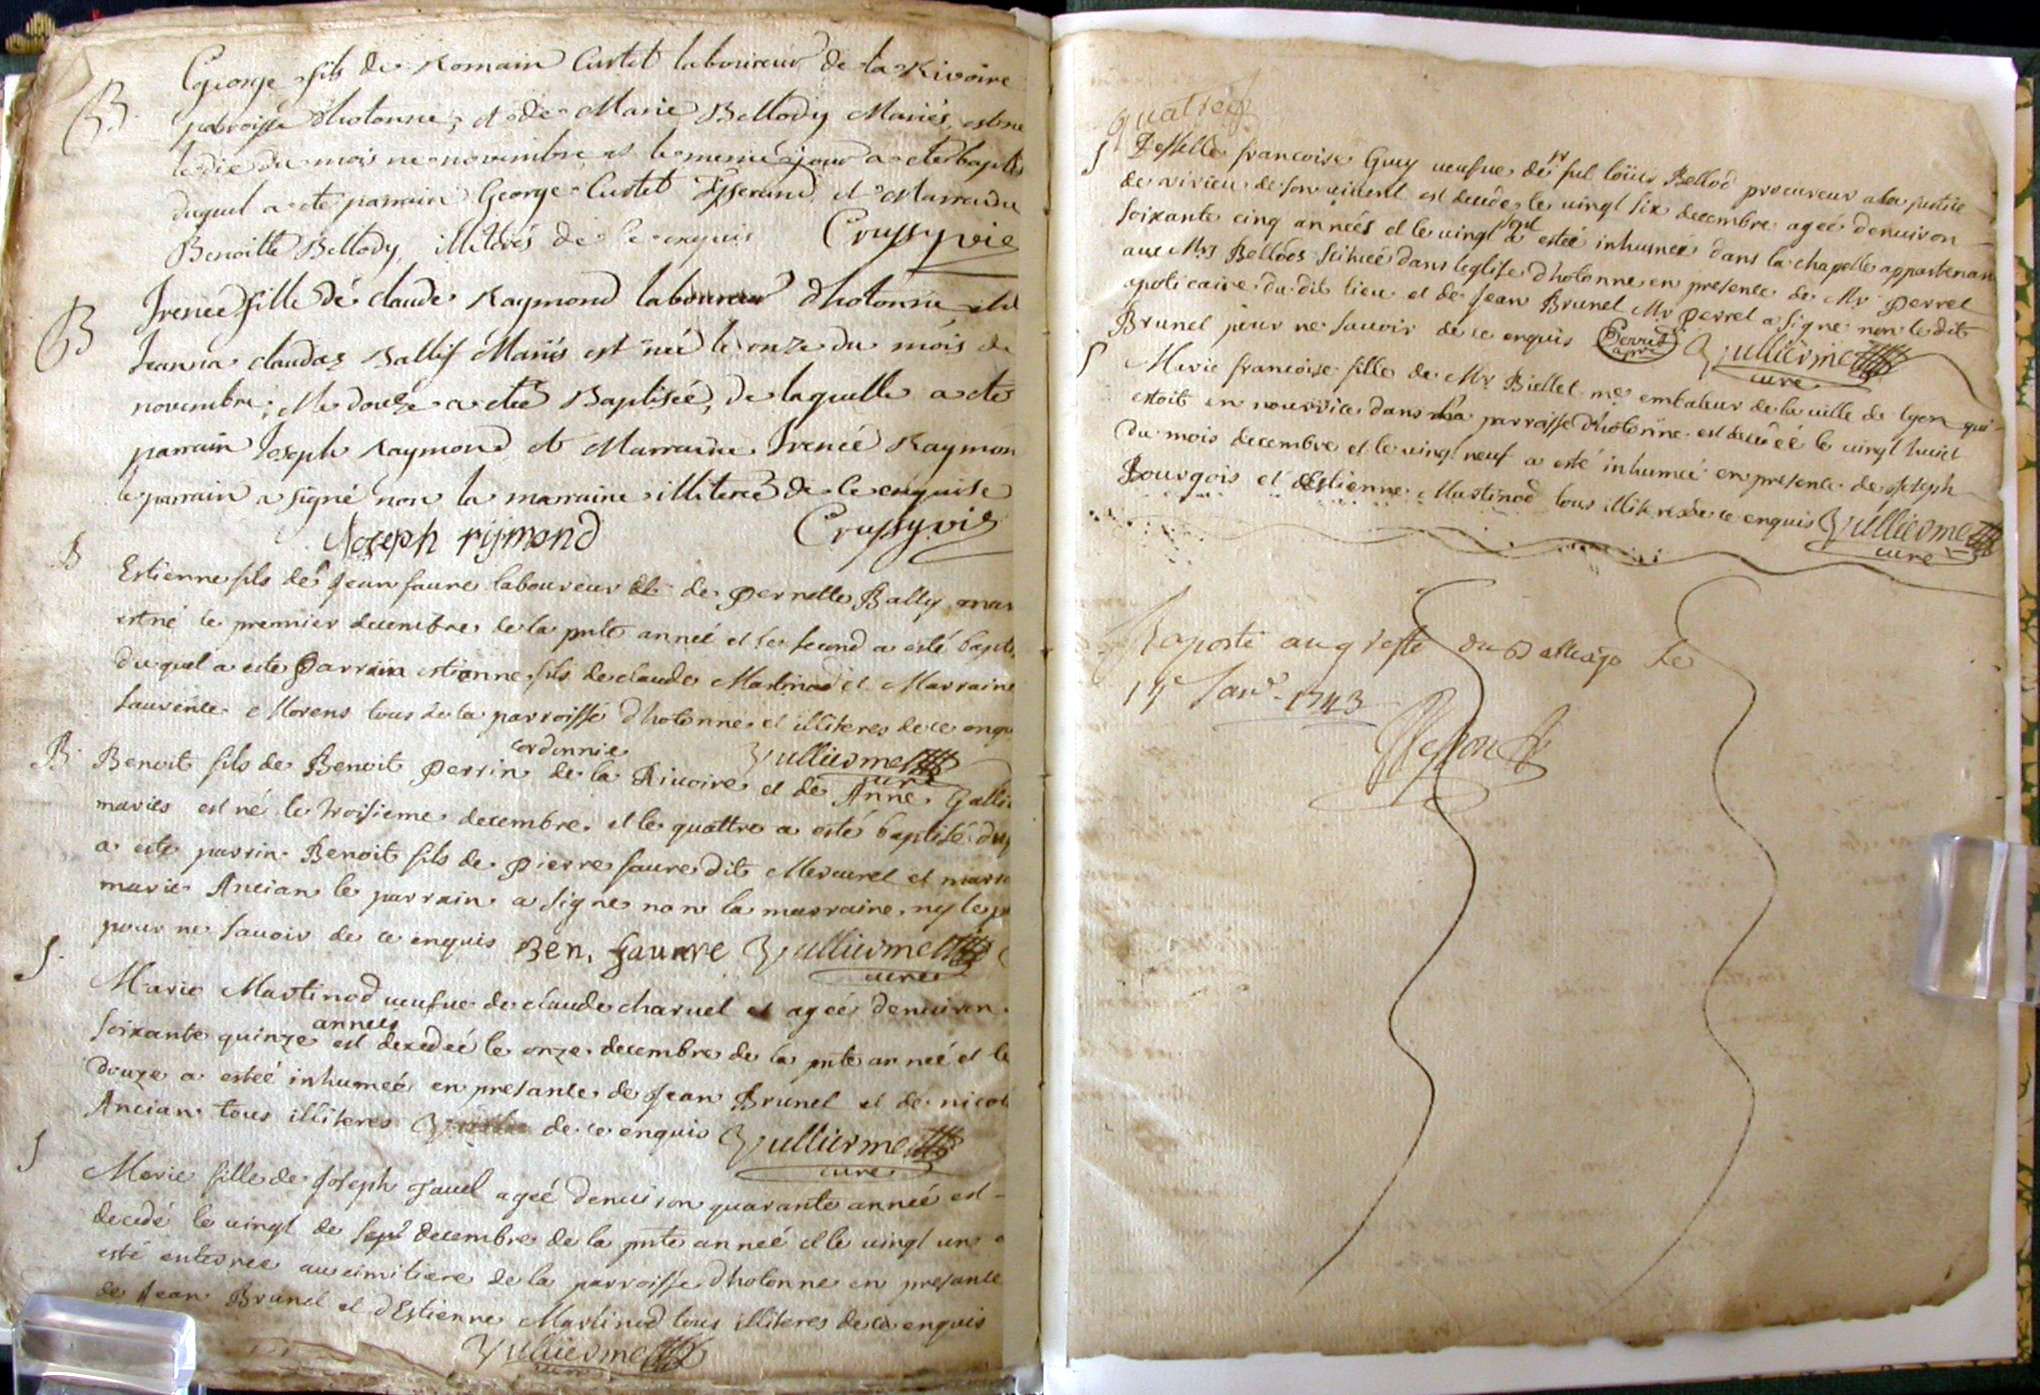 B
George fils de Romain Curtet laboureur de la Rivoire
parroisse dhotonne, et de Marie Bellody Mariés, est né
le dix du mois ne novembre et le meme jour a eté baptis
duquel a ete parrain George Curtet Tisserand et Marraine
Benoitte Bellody, illiterés de ce enquis Croussyvie
B
Irenée fille dé claude Raymond laboureur dhotonne et d
Jeanna claudaz Ballif Mariés est née le onze du mois de
novembre, et le douze a eteé Baptisée, de laquelle a ete
parrain Joseph Raymond et Marraine Irenée Raymon
le parrain a signé non la marraine illiterée de ce enquise
Joseph rijmond Croussyvie
B
Estienne fils de Jean faure laboureur et de pernette Bally mar
est né le premier decembre de la pnte année et le second a esté bapti
du quel a este Parrain estienne fils de claude Martinod et Marraine
Laurence Morens tous de la parroisse dhotonne et illiteres de ce enqu
Vulliermet curé
B
cordonnie
Benoit fils de Benoit perrin de la Rivoire et de Anne Galli
maries est né le troisieme decembre et le quattre a esté baptisé du
a este parrin Benoit fils de pierre faure dit Mercurel et marr
marie Ancian le parrain a signe non la marraine ny le p
pour ne savoir de ce enquis Ben. faurre Vulliermet curé
S
Marie Martinod veufve de claude charvel et ageé denviron
soixante quinze années est decedeé le onze decembre de la pnte anneé et le
douze a esteé inhumeé en presance de Jean Brunel et de nicol
Ancian tous illiteres de ce enquis Vulliermet curé
S
Marie fille de Joseph Javel ageé denviron quarante anneé est
decedé le vingt de sepr decembre de la pnte anneé et le vingt un a
esté enterree au cimitiere de la parroisse dhotonne en presance
de Jean Brunel et dEstienne Martinod tous illiteres de ce enquis
Vulliermet curé
quatre
S
Deffelle francoise Guy veufve de sr ful loüis Bellod procureur a la justice
de virieu de son vivent est decede le vingt six decembre ageé denviron
soixante cinq anneés et le vingt sept a esteé inhumeé dans la chapelle appartenan
aux Mrs Bellods scitueé dans leglise dhotonne en presence de Mr perret
apoticaire du dit lieu et de Jean Brunel Mr perret a signe non le dit
Brunel pour ne savoir de ce enquis Perret apre Vulliermet curé
S
Marie francoise fille de Mr Biellet me embaleur de la ville de lyon qui
estoit en nourrice dans la parroisse dhotonne est decedeé le vingt huict
du mois decembre et le vingt neuf a esté inhumeé en presence de Joseph
Bourgois et dEstienne Martinod tous illiteres de ce enquis Vulliermet
curé
Raporté au greffe du Balliage le
14 Janv. 1743